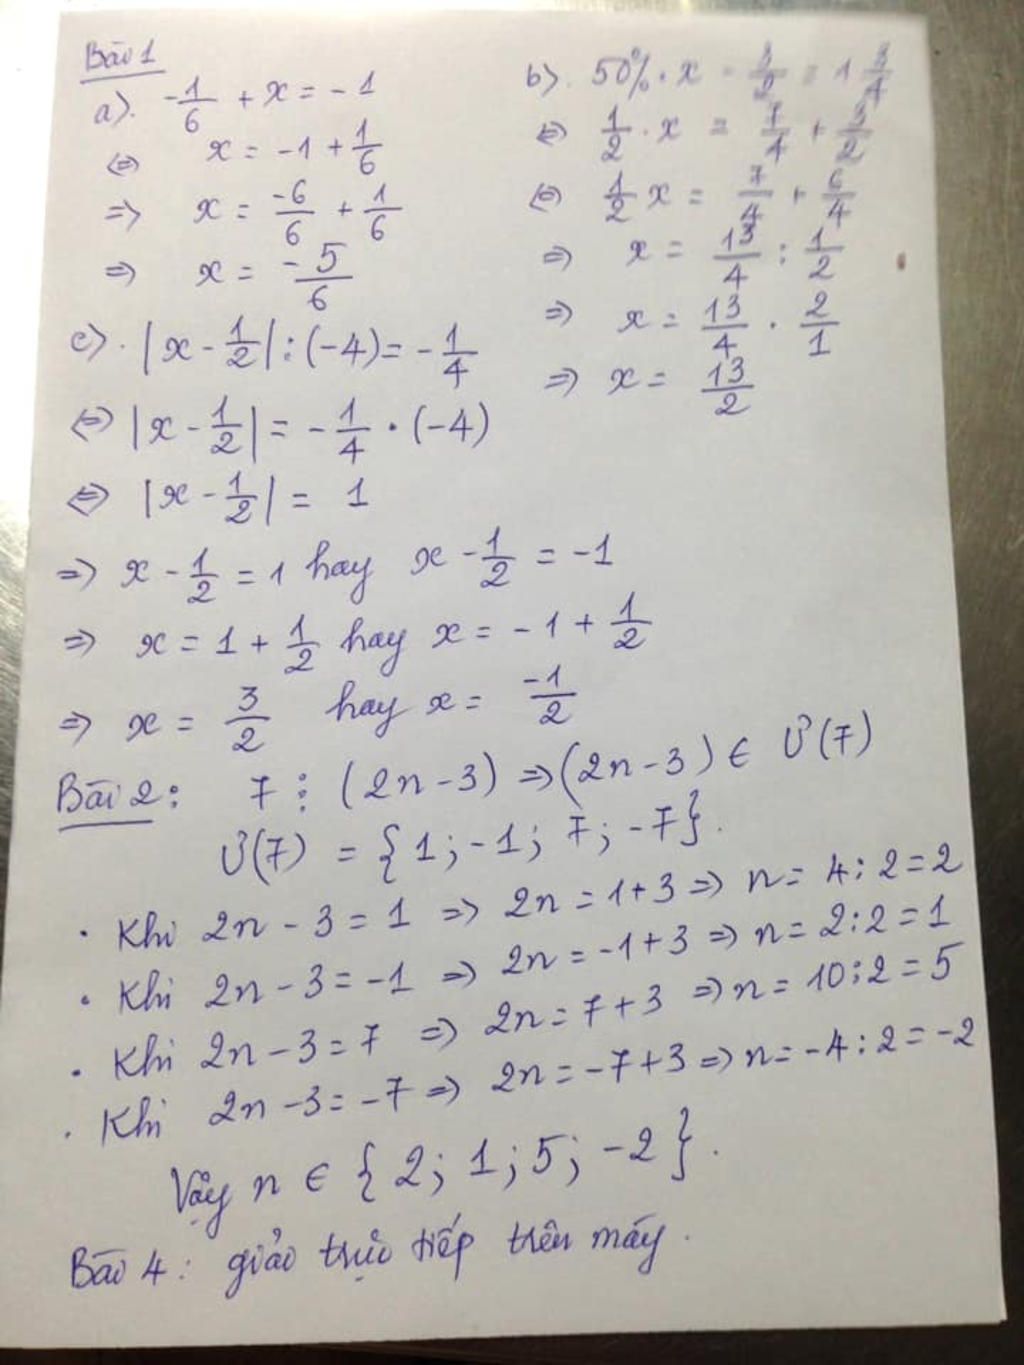 Bài 1
a). -1/6 + x = -1
⇔ x = -1 + 1/6
⇒ x = -6/6 + 1/6
⇒ x = -5/6
b). 50% . x - 3/2 = 1 3/4
⇔ 1/2 . x = 7/4 + 3/2
⇔ 1/2 x = 7/4 + 6/4
⇒ x = 13/4 : 1/2
⇒ x = 13/4 . 2/1
⇒ x = 13/2
c). |x - 1/2| : (-4) = -1/4
⇔ |x - 1/2| = -1/4 . (-4)
⇔ |x - 1/2| = 1
⇒ x - 1/2 = 1 hay x - 1/2 = -1
⇒ x = 1 + 1/2 hay x = -1 + 1/2
⇒ x = 3/2 hay x = -1/2
Bài 2: 7 ⋮ (2n - 3) ⇒ (2n - 3) ∈ Ư(7)
Ư(7) = {1; -1; 7; -7}.
. Khi 2n - 3 = 1 ⇒ 2n = 1+3 ⇒ n = 4 : 2 = 2
. Khi 2n - 3 = -1 ⇒ 2n = -1+3 ⇒ n = 2 : 2 = 1
. Khi 2n - 3 = 7 ⇒ 2n = 7+3 ⇒ n = 10 : 2 = 5
. Khi 2n - 3 = -7 ⇒ 2n = -7+3 ⇒ n = -4 : 2 = -2
Vậy n ∈ {2; 1; 5; -2}.
Bài 4: giảo trực tiếp trên máy.